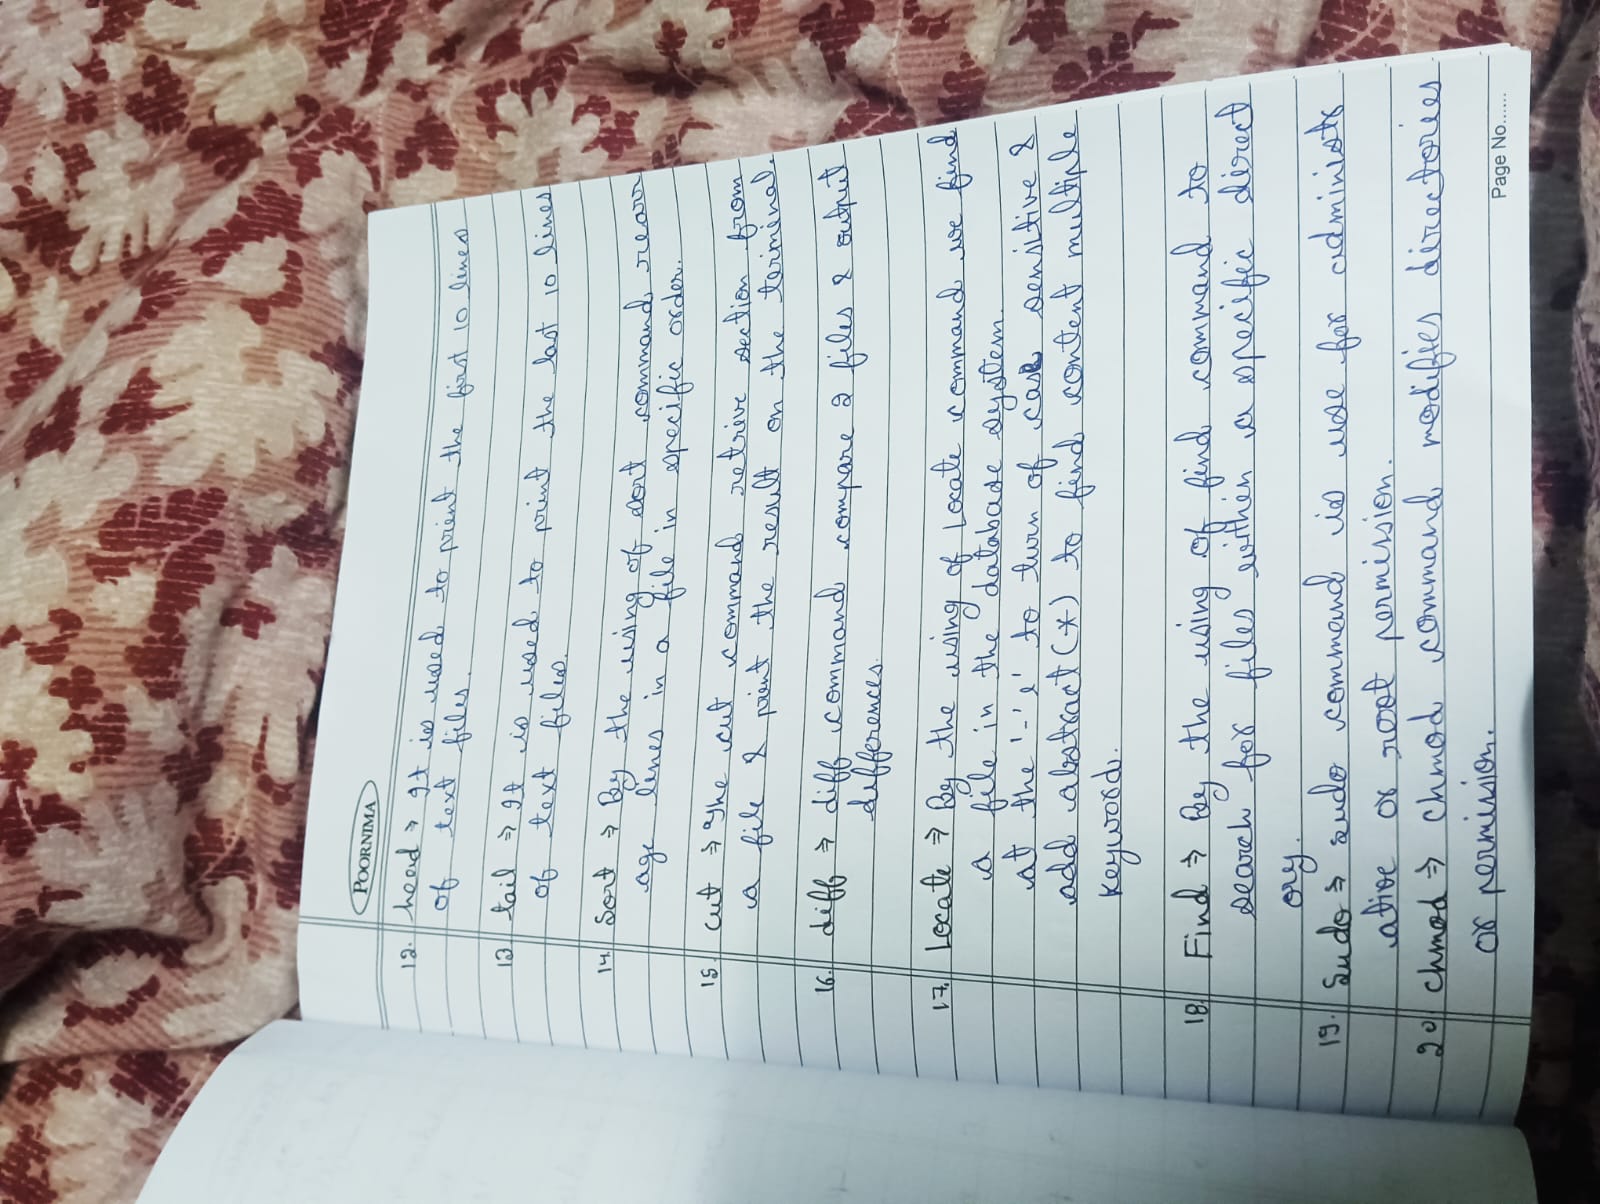 POORNIMA
12. heead ⇒ It is used to prient the first 10 lines
of text files.
13 tail ⇒ It is used to print the last 10 lines
of text files.
14. Sort ⇒ By the using of sort command rearr
age lines in a file in specific order.
15. cut ⇒ The cut command retrive section from
a file & prient the result on the teriminal.
16. diff ⇒ diff command compare 2 files & output
differences.
17. Locate ⇒ By the using of Locate command we find
a file in the database system.
at the '-i' to turn of case sensitive &
add abstract (*) to find content multiple
keywords.
18. Find ⇒ By the using of find command to
search for files within a specific direct
ory.
19. Sudo ⇒ sudo command is use for administr
ative or root permission.
20. Chmod ⇒ chmod command modifies directories
or permission.
Page No......